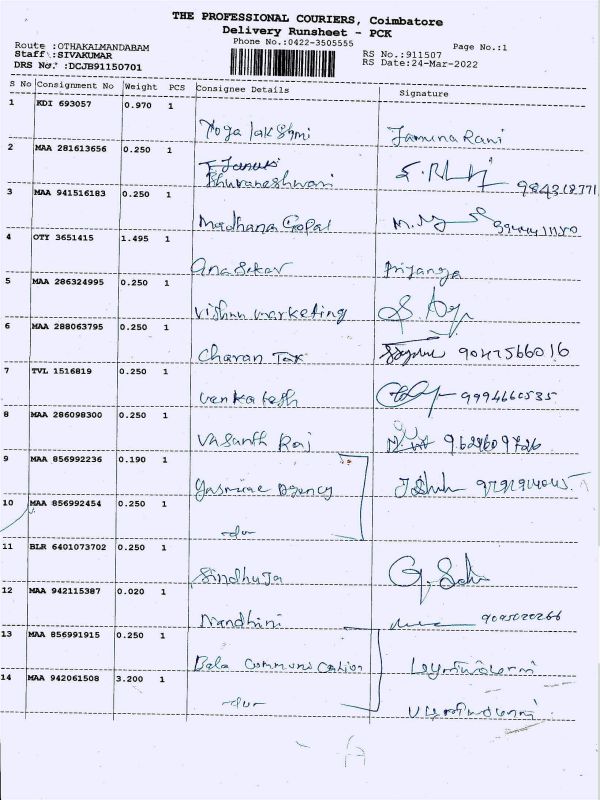 THE PROFESSIONAL COURIERS, Coimbatore
Delivery Runsheet - PCK
Phone No.:0422-3505555
Page No.:1
Route :OTHAKALMANDABAM
Staff :SIVAKUMAR
DRS No. :DCJB91150701
RS No.:911507
RS Date:24-Mar-2022
S No Consignment No Weight PCS Consignee Details Signature
1 KDI 693057 0.970 1
Yoga lakshmi Jamuna Rani
2 MAA 281613656 0.250 1
Bhuvaneshwari
3 MAA 941516183 0.250 1
Madhana Gopal
4 OTY 3651415 1.495 1
Ana Sekar Priyanga
5 MAA 286324995 0.250 1
Vishnu marketing
6 MAA 288063795 0.250 1
Charan Tax
7 TVL 1516819 0.250 1
Venkatesh 9994660535
8 MAA 286098300 0.250 1
Vasanth Raj
9 MAA 856992236 0.190 1
Yasmine Agency
10 MAA 856992454 0.250 1
-do-
11 BLR 6401073702 0.250 1
Sindhuja
12 MAA 942115387 0.020 1
Nandhini
13 MAA 856991915 0.250 1
Bala Communication
14 MAA 942061508 3.200 1
-do-